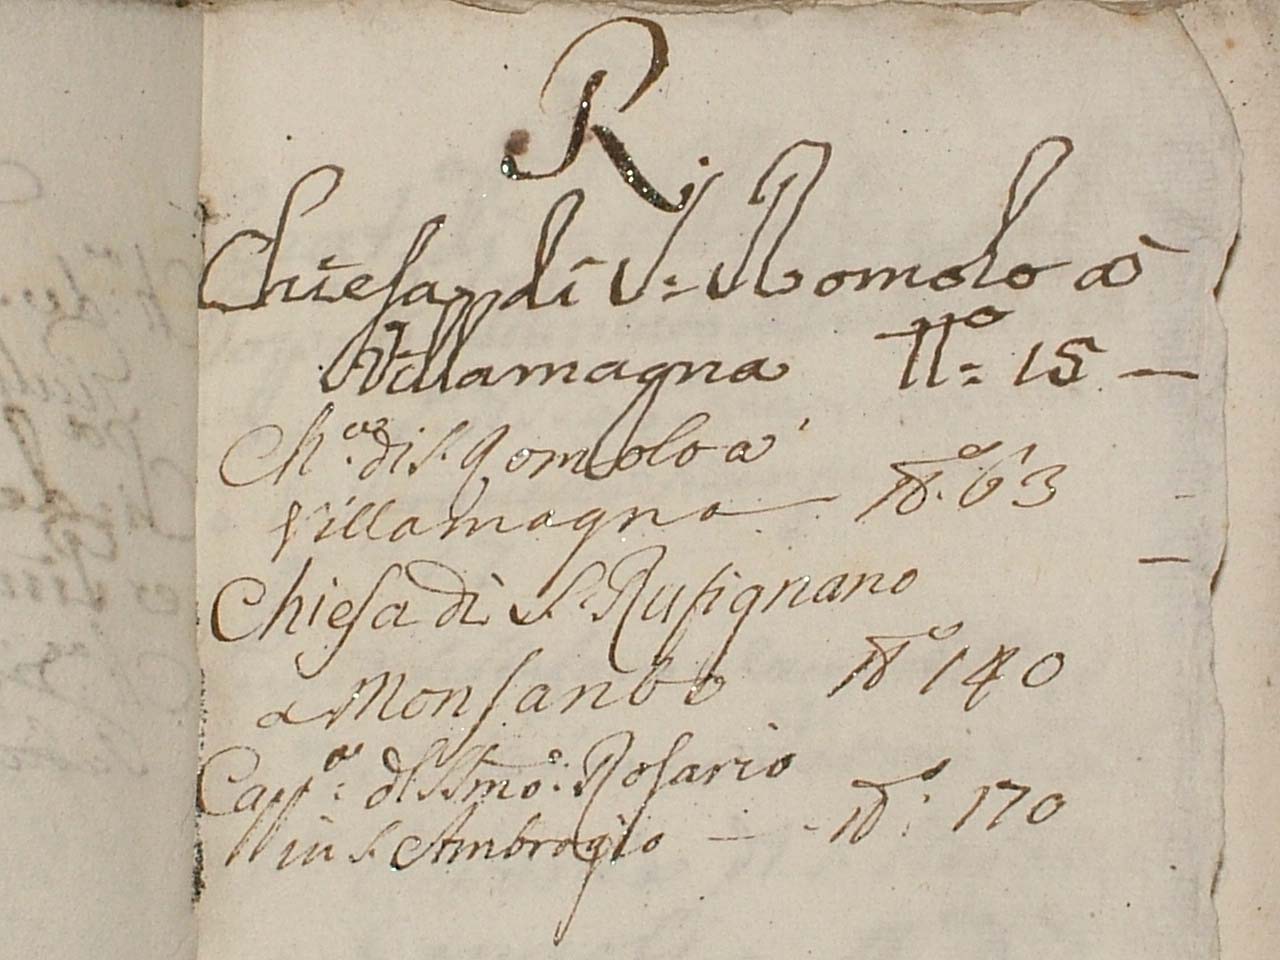 R.
Chiesa di S. Romolo à
Villamagna N.o 15 —
Ch.a di S. Romolo a'
Villamagna — N.o 63
Chiesa di S. Rufignano
a Monsanto N.o 140
Capp.a del SSmo. Rosario
in S. Ambrogio — N.o 170